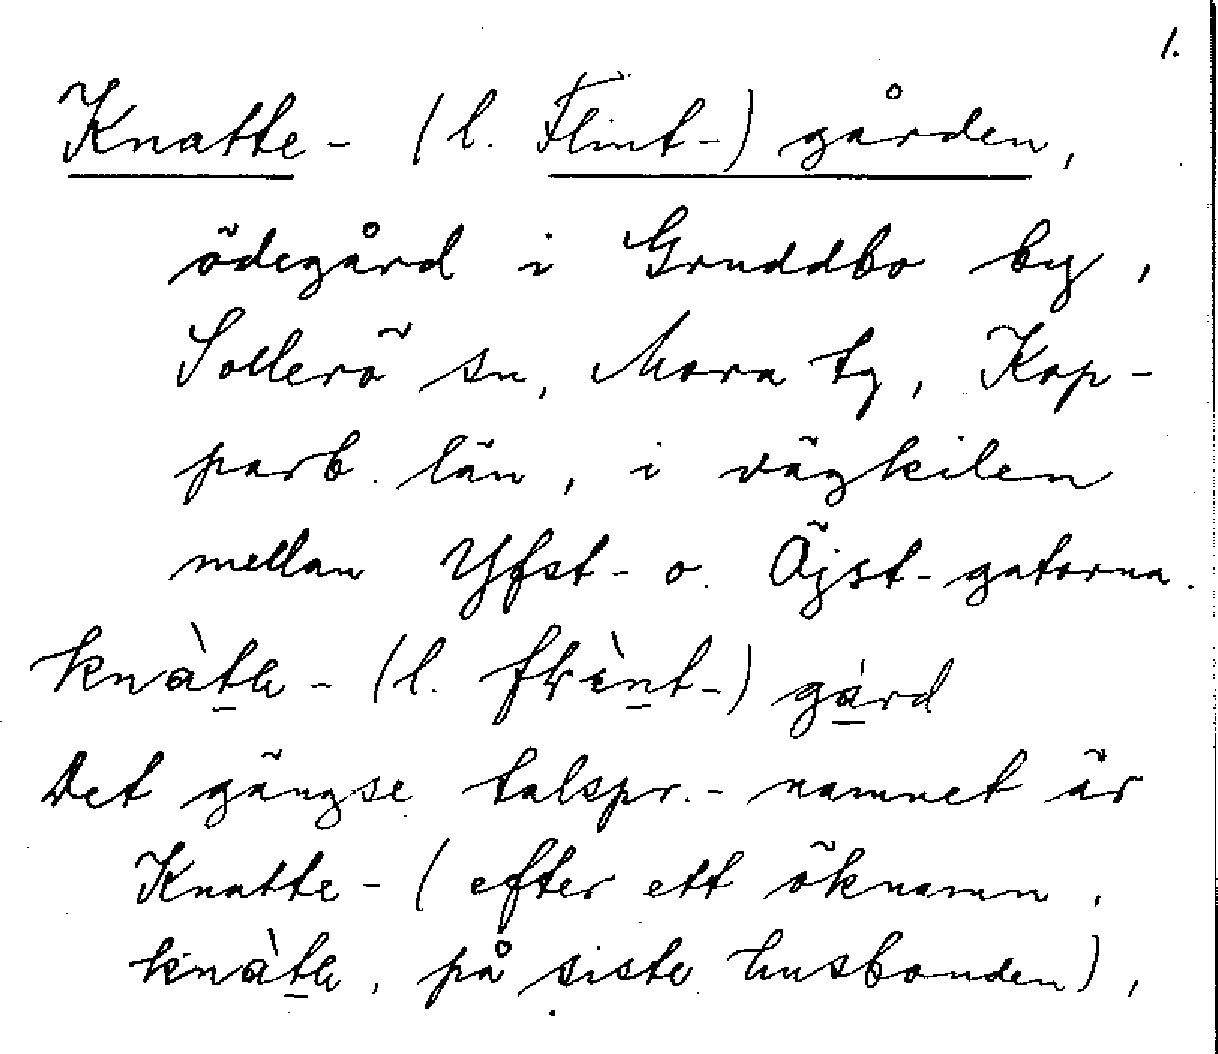 1.
Knatte- (l. Flint-) gården,
ödegård i Gruddbo by,
Sollerö sn, Mora tg, Kop-
parb. län, i vägkilen
mellan Yfst- o. Öjst-gatorna.
knàtɩ- (l. flɩ̀nt-) gárd
Det gängse talspr.-namnet är
Knatte- (efter ett öknamn,
knàtɩ, på siste husbonden),